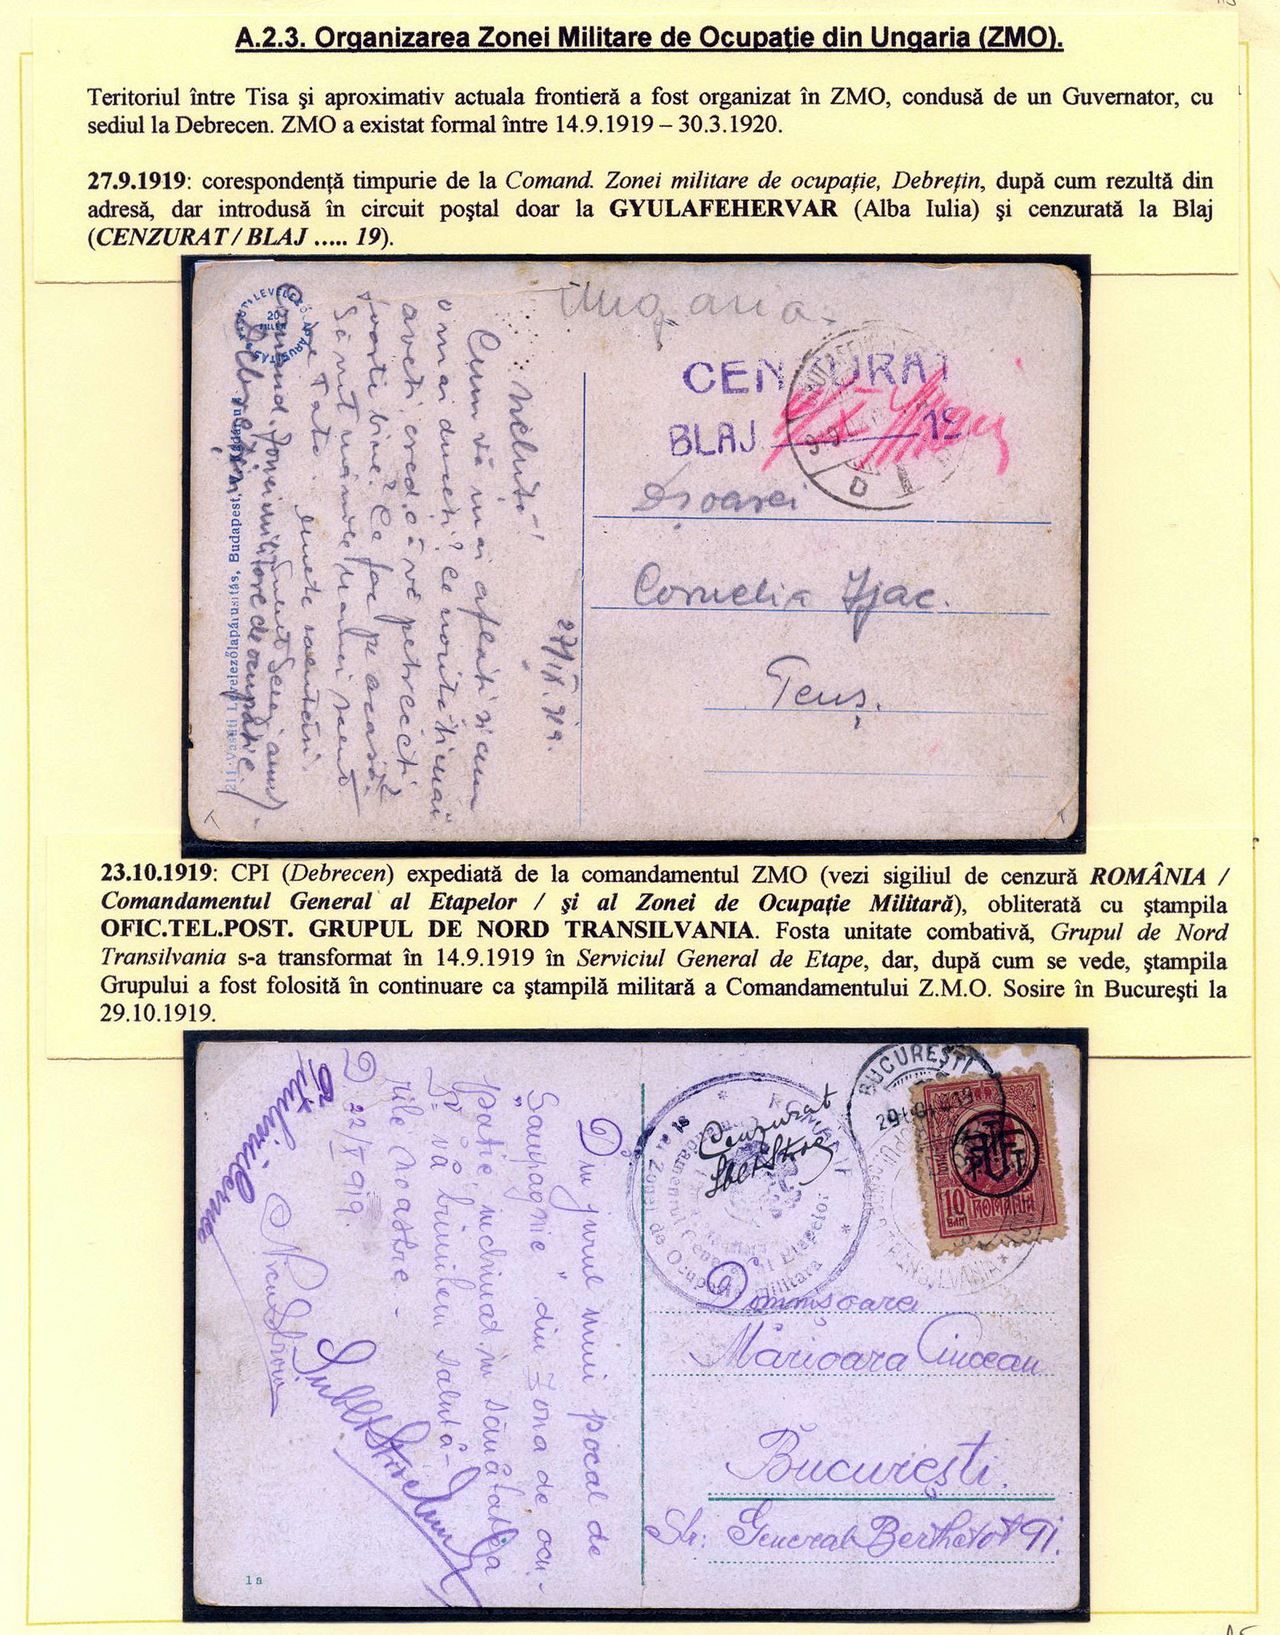 A.2.3. Organizarea Zonei Militare de Ocupaţie din Ungaria (ZMO).
Teritoriul între Tisa şi aproximativ actuala frontieră a fost organizat în ZMO, condusă de un Guvernator, cu
sediul la Debrecen. ZMO a existat formal între 14.9.1919 – 30.3.1920.
27.9.1919: corespondenţă timpurie de la Comand. Zonei militare de ocupaţie, Debreţin, după cum rezultă din
adresă, dar introdusă în circuit poştal doar la GYULAFEHERVAR (Alba Iulia) şi cenzurată la Blaj
(CENZURAT / BLAJ ..... 19).
Ungaria.
CENZURAT
BLAJ 19
D
Dşoarei
Cornelia Ijac.
Teuş.
27/IX.919.
Neluţo!
Cum vă mai aflaţi şi cum
o mai duceţi? Ce noutăţi mai
aveţi, cred că vă petreceţi
foarte bine? Ce fac pe acasă?
Sărut mânile mamei
Tata.
Comand. Zonei militare de ocupaţie
Debreţin
Levelezőlapárusítás, Budapest,
23.10.1919: CPI (Debrecen) expediată de la comandamentul ZMO (vezi sigiliul de cenzură ROMÂNIA /
Comandamentul General al Etapelor / şi al Zonei de Ocupaţie Militară), obliterată cu ştampila
OFIC.TEL.POST. GRUPUL DE NORD TRANSILVANIA. Fosta unitate combativă, Grupul de Nord
Transilvania s-a transformat în 14.9.1919 în Serviciul General de Etape, dar, după cum se vede, ştampila
Grupului a fost folosită în continuare ca ştampilă militară a Comandamentului Z.M.O. Sosire în Bucureşti la
29.10.1919.
Din jurul unui pocal de
"Şampagnie" din Zona de ocu-
paţie, închinat în sănătatea
Dv vă trimitem salută-
rile noastre. -
D 22/X 919.
Cenzurat
BUCUREŞTI
10 BANI
ROMANIA
TRANSILVANIA
Domnişoarei
Mărioara Cincean
Bucureşti.
Str: General Berthelot 91.
1a